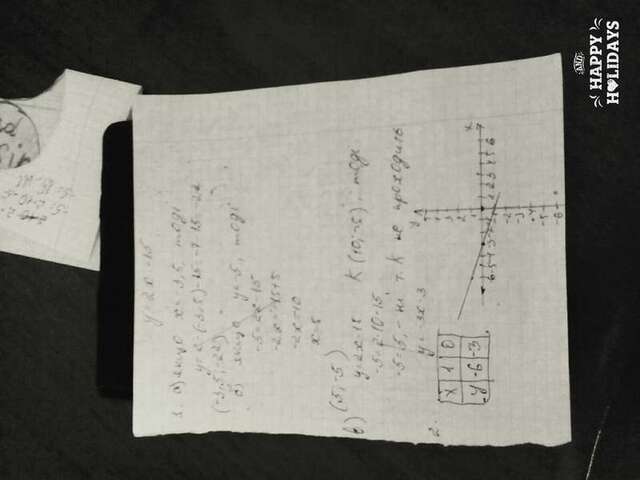 y=2x-15
1. а) якщо x=-3,5, тоді
y=2·(-3,5)-15=-7-15=-22
(-3,5;-22)
б) якщо y=-5, тоді
-5=2x-15
-2x=-15+5
-2x=-10
x=5
(5;-5)
в) y=2x-15 K(10;-5), тоді
-5=2·10-15
-5=5, - ні т.К не проходить
2. y=-3x-3
x 1 0
y -6 -3
y
x
AND
HAPPY
HOLIDAYS